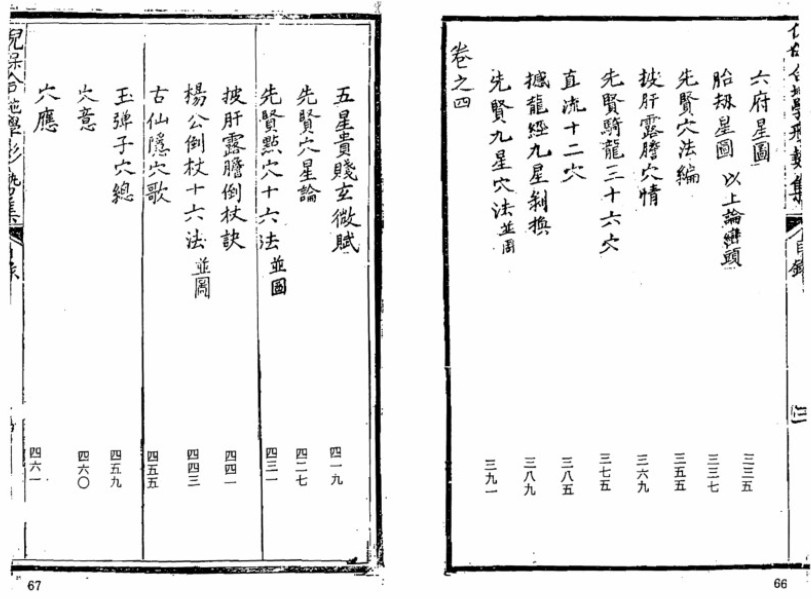 地學形勢集
目錄
六府星圖 三三五
胎刼星圖 以上論巒頭 三三七
先賢穴法編 三五五
披肝露膽穴情 三六九
先賢騎龍三十六穴 三七五
直流十二穴 三八五
撼龍經九星剝換 三八九
先賢九星穴法並圖 三九一
卷之四
66
五星貴賤玄微賦 四一九
先賢穴星論 四二七
先賢點穴十六法並圖 四三一
披肝露膽倒杖訣 四四一
楊公倒杖十六法並圖 四四三
古仙隱穴歌 四五五
玉彈子穴總 四五九
穴意 四六〇
穴應 四六一
67